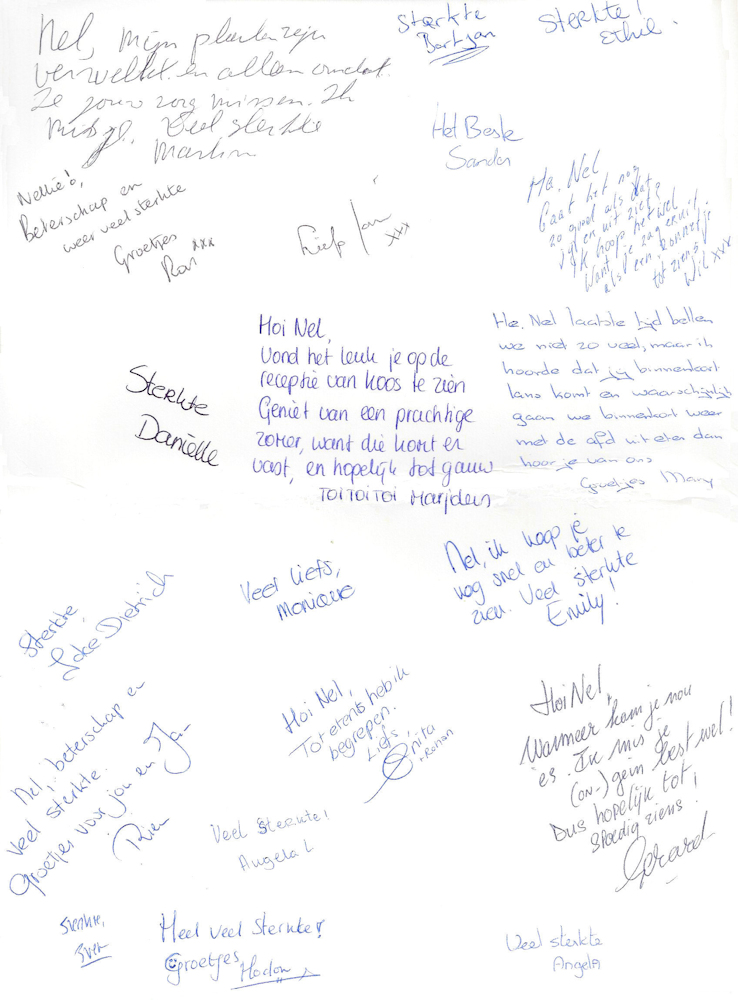 Nel, mijn planten zijn
verwelkt en alleen omdat
ze jouw zorg missen. Ik
mis je. Veel sterkte
Marlin
Sterkte
Bertjan
Sterkte!
Ethie.
Het Beste
Sander
Nellie!,
Beterschap en
weer veel sterkte
Groetjes
Ron xxx
Liefs Jan
xxx
Ha. Nel
Gaat het nog
zo goed als dat
jij er uit ziet?
Ik hoop het wel
Want je zag eruit
als een zonnetje
tot ziens
Wil xxx
Sterkte
Daniëlle
Hoi Nel,
Vond het leuk je op de
receptie van Koos te zien
Geniet van een prachtige
zomer, want die komt er
vast, en hopelijk tot gauw
TOITOITOI Marjolein
He, Nel laatste tijd bellen
we niet zo veel, maar ik
hoorde dat jij binnenkort
langs komt en waarschijnlijk
gaan we binnenkort weer
met de afd uit eten dan
hoor je van ons
Groetjes Mary
Sterkte,
Joke Dietrich
Veel liefs,
Monique
Nel, ik hoop je
nog snel en beter te
zien. Veel sterkte
Emily!
Nel, beterschap en
veel sterkte.
Groetjes voor jou en Jan
Rien
Hoi Nel,
Tot etens heb ik
begrepen.
Liefs,
Anita
+ Ronan
Hoi Nel,
Wanneer kom je nou
es. Ik mis je
(on-)gein best wel!
Dus hopelijk tot
spoedig ziens!
Gerard
Veel Sterkte!
Angela L
Sterkte,
Sven
Heel veel Sterkte!
Groetjes,
Veel sterkte
Angela